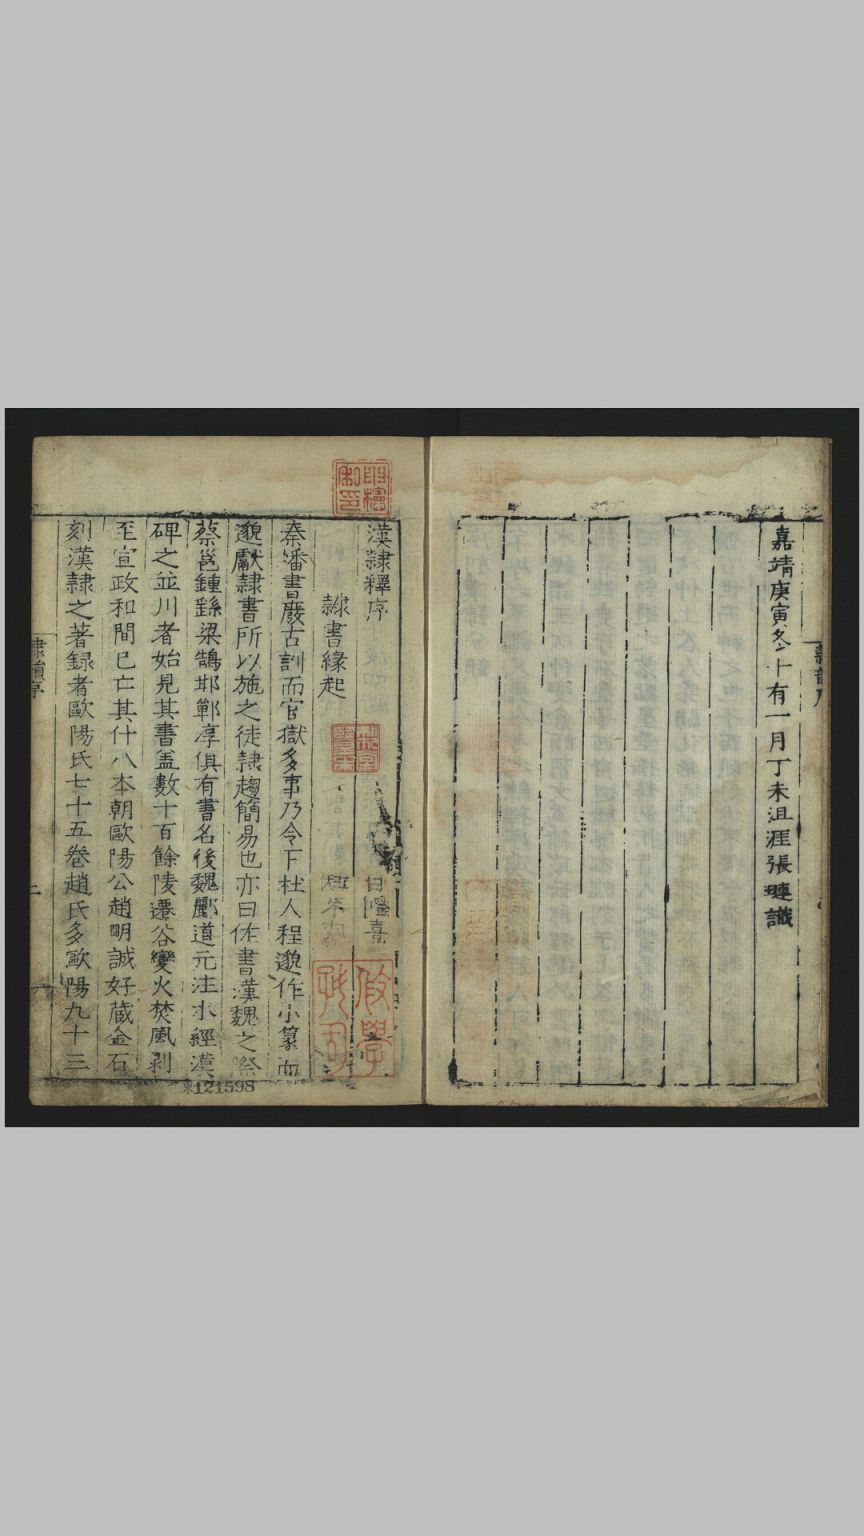 嘉靖庚寅冬十有一月丁未沮涯張璉識
漢隸釋序
隸書緣起
秦燔書廢古訓而官獄多事乃令下杜人程邈作小篆而
邈獻隸書所以施之徒隸趨簡易也亦曰佐書漢魏之際
蔡邕鍾繇梁鵠邯鄲淳俱有書名後魏酈道元注水經漢
碑之並川者始見其書盖數十百餘陵遷谷變火焚風剥
至宣政和間已亡其什八本朝歐陽公趙明誠好蔵金石
刻漢隸之著録者歐陽氏七十五卷趙氏多歐陽九十三
隸韻序
121598